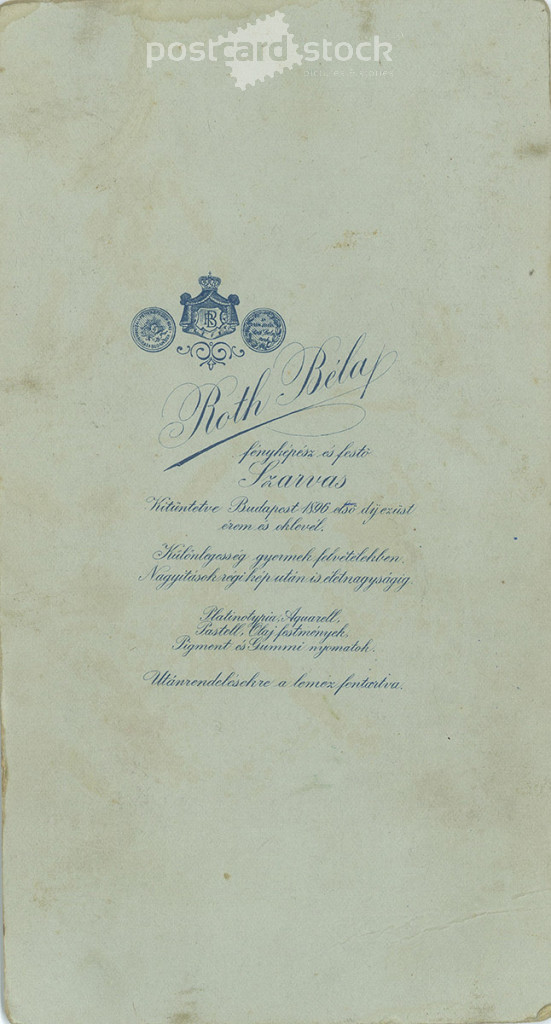 postcard stock
pictures & stories
RB
Roth Béla
fényképész és festő
Szarvas
Kitüntetve Budapest 1896 első díj ezüst
érem és oklevél.
Különlegesség gyermek felvételekben.
Nagyítások régi kép után is életnagyságig.
Platinotypia, Aquarell,
Pastell, Olaj festmények,
Pigment és Gummi nyomatok.
Utánrendelésekre a lemez fentartva.